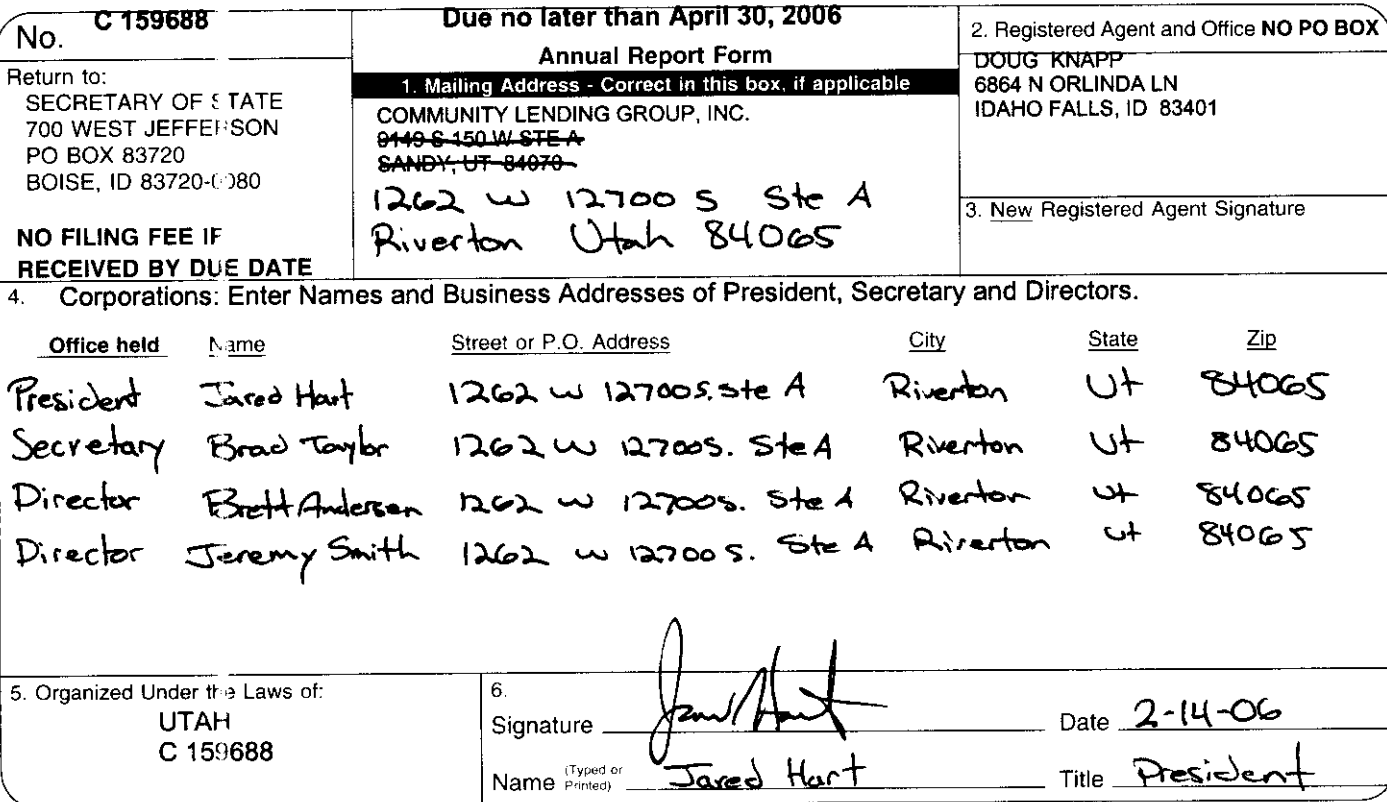 No. C 159688
Due no later than April 30, 2006
Annual Report Form
Return to:
SECRETARY OF STATE
700 WEST JEFFERSON
PO BOX 83720
BOISE, ID 83720-0080
NO FILING FEE IF
RECEIVED BY DUE DATE
1. Mailing Address - Correct in this box, if applicable
COMMUNITY LENDING GROUP, INC.
9149 S 150 W STE A
SANDY, UT 84070
1262 W 12700 S Ste A
Riverton Utah 84065
2. Registered Agent and Office NO PO BOX
DOUG KNAPP
6864 N ORLINDA LN
IDAHO FALLS, ID 83401
3. New Registered Agent Signature
4. Corporations: Enter Names and Business Addresses of President, Secretary and Directors.
Office held Name Street or P.O. Address City State Zip
President Jared Hart 1262 W 12700 S. Ste A Riverton Ut 84065
Secretary Brad Taylor 1262 W 12700 S. Ste A Riverton Ut 84065
Director Brett Andersen 1262 W 12700 S. Ste A Riverton Ut 84065
Director Jeremy Smith 1262 W 12700 S. Ste A Riverton Ut 84065
5. Organized Under the Laws of:
UTAH
C 159688
6.
Signature Jared Hart Date 2-14-06
Name (Typed or Printed) Jared Hart Title President